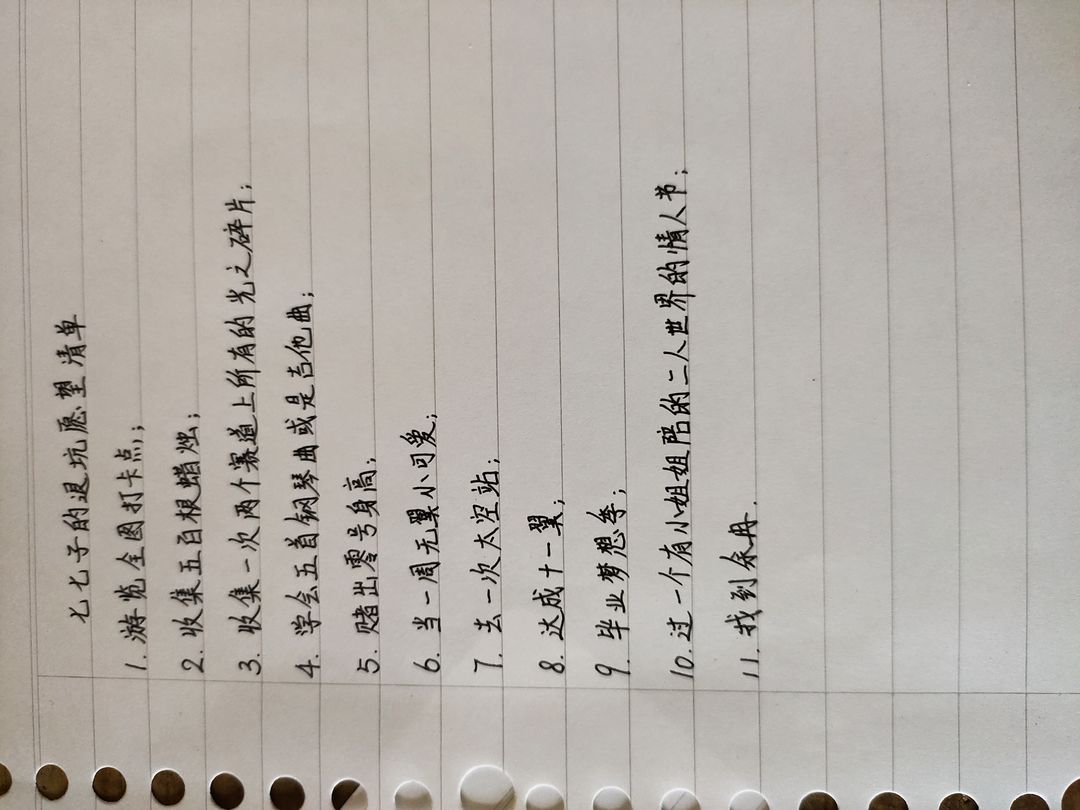 七七子的退坑愿望清单
1. 游览全图打卡点;
2. 收集五百根蜡烛;
3. 收集一次两个赛道上所有的光之碎片;
4. 学会五首钢琴曲或是吉他曲;
5. 赌出零号身高;
6. 当一周无翼小可爱;
7. 去一次太空站;
8. 达成十一翼;
9. 毕业梦想季;
10. 过一个有小姐姐陪的二人世界的情人节;
11. 找到余冉.